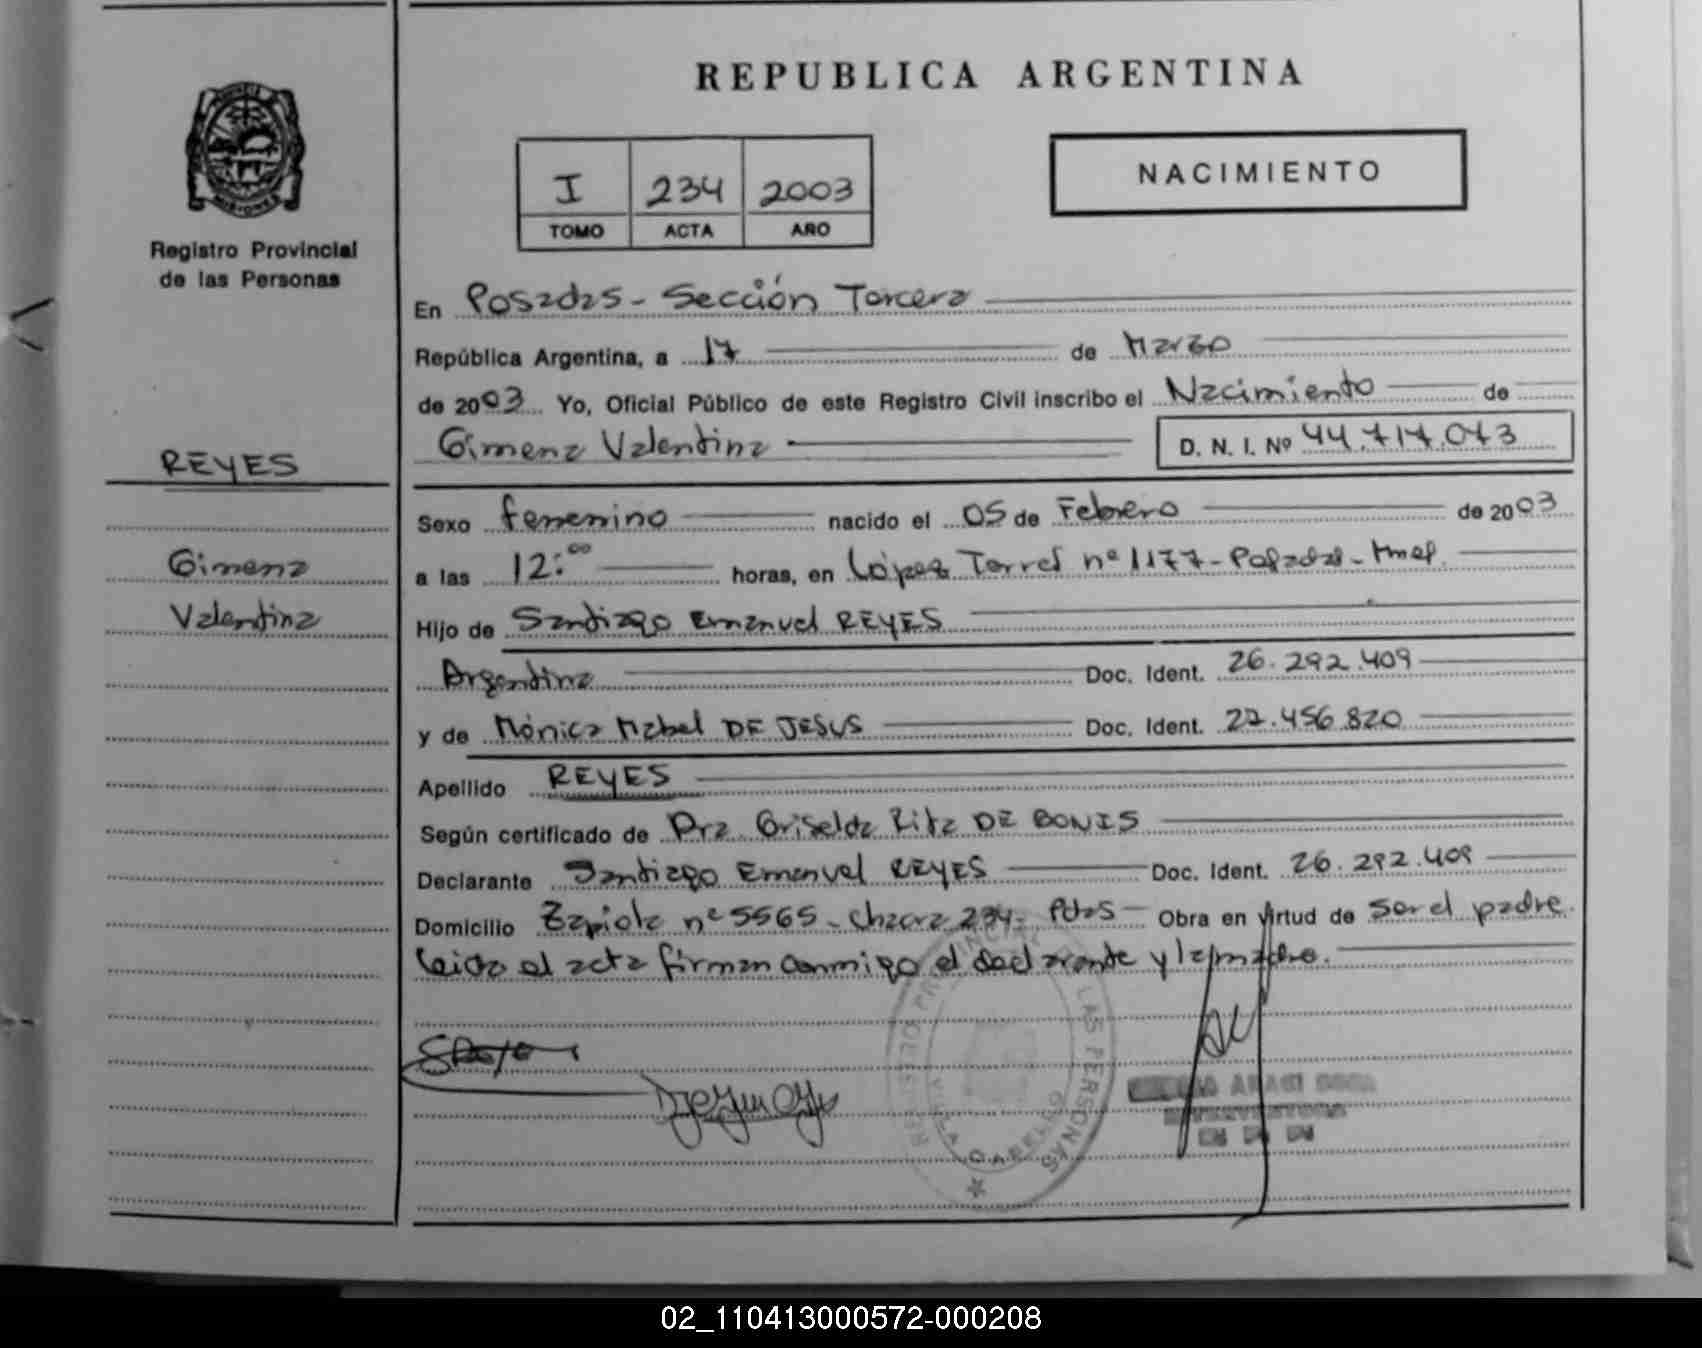 REPUBLICA ARGENTINA
PROVINCIA DE
MISIONES
Registro Provincial
de las Personas
I 234 2003
TOMO ACTA AÑO
NACIMIENTO
En Posadas - Sección Tercera
República Argentina, a 17 de Marzo
de 2003 Yo, Oficial Público de este Registro Civil inscribo el Nacimiento de
Gimena Valentina D. N. I. Nº 44.717.073
REYES
Gimena
Valentina
Sexo femenino nacido el 05 de Febrero de 2003
a las 12:00 horas, en López Torres nº 1177 - Posadas - Mnes.
Hijo de Santiago Emanuel REYES
Argentina Doc. Ident. 26.292.409
y de Mónica Mabel DE JESUS Doc. Ident. 27.456.820
Apellido REYES
Según certificado de Dra Griselda Rita DE BONIS
Declarante Santiago Emanuel REYES Doc. Ident. 26.292.409
Domicilio Zapiola nº 5565 - Chacra 234 - Pdas - Obra en virtud de ser el padre.
Leida el acta firman conmigo el declarante y la madre.
REGISTRO PROVINCIAL DE LAS PERSONAS
VILLA CABELLO
02_110413000572-000208